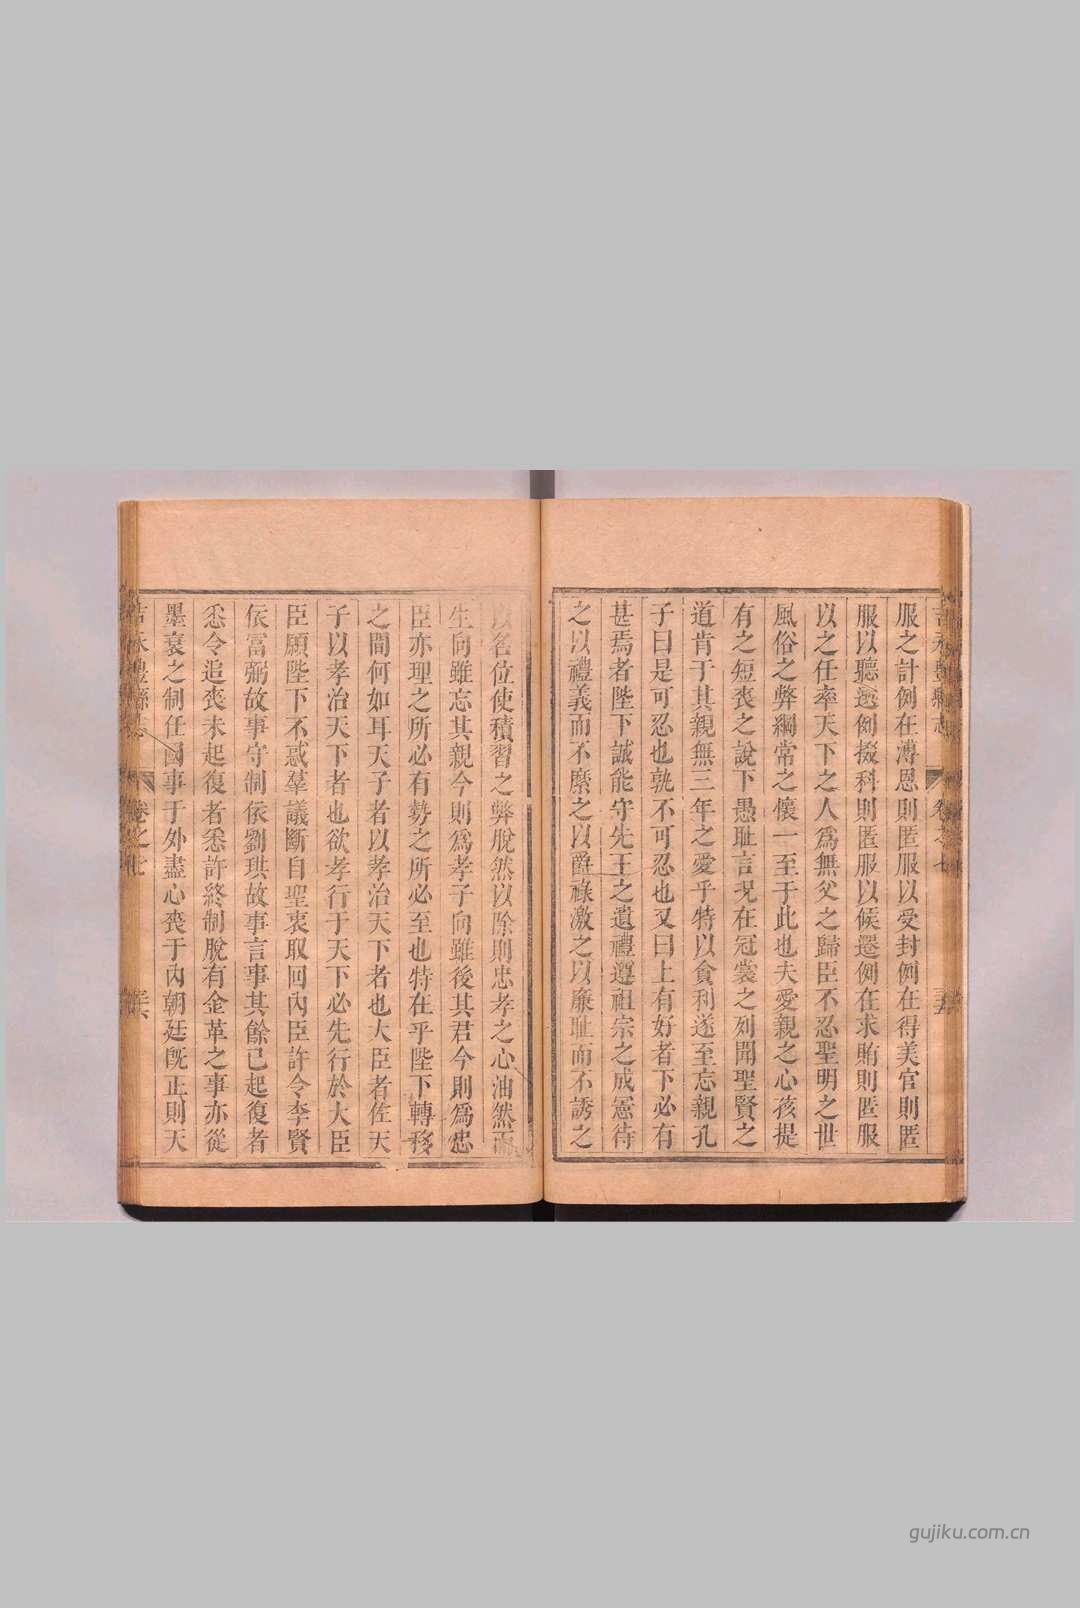 服之計例在溥恩則匿服以受封例在得美官則匿
服以聽選例掇科則匿服以候選例在求賄則匿服
以之任率天下之人爲無父之歸臣不忍聖明之世
風俗之弊綱常之懷一至于此也夫愛親之心孩提
有之短丧之說下愚耻言况在冠裳之列聞聖賢之
道肯于其親無三年之愛乎特以貪利遂至忘親孔
子曰是可忍也孰不可忍也又曰上有好者下必有
甚焉者陛下誠能守先王之遺禮遵祖宗之成憲待
之以禮義而不縻之以爵祿激之以廉耻而不誘之
以名位使積習之弊脫然以除則忠孝之心油然而
生向雖忘其親今則爲孝子向雖後其君今則爲忠
臣亦理之所必有勢之所必至也特在乎陛下轉移
之間何如耳天子者以孝治天下者也大臣者佐天
子以孝治天下者也欲孝行于天下必先行於大臣
臣願陛下不惑羣議斷自聖衷取回內臣許令李賢
依富弼故事守制依劉珙故事言事其餘已起復者
悉令追丧未起復者悉許終制脫有金革之事亦從
墨衰之制任國事于外盡心丧于內朝廷旣正則天
吉永豐縣志 卷之七
gujiku.com.cn